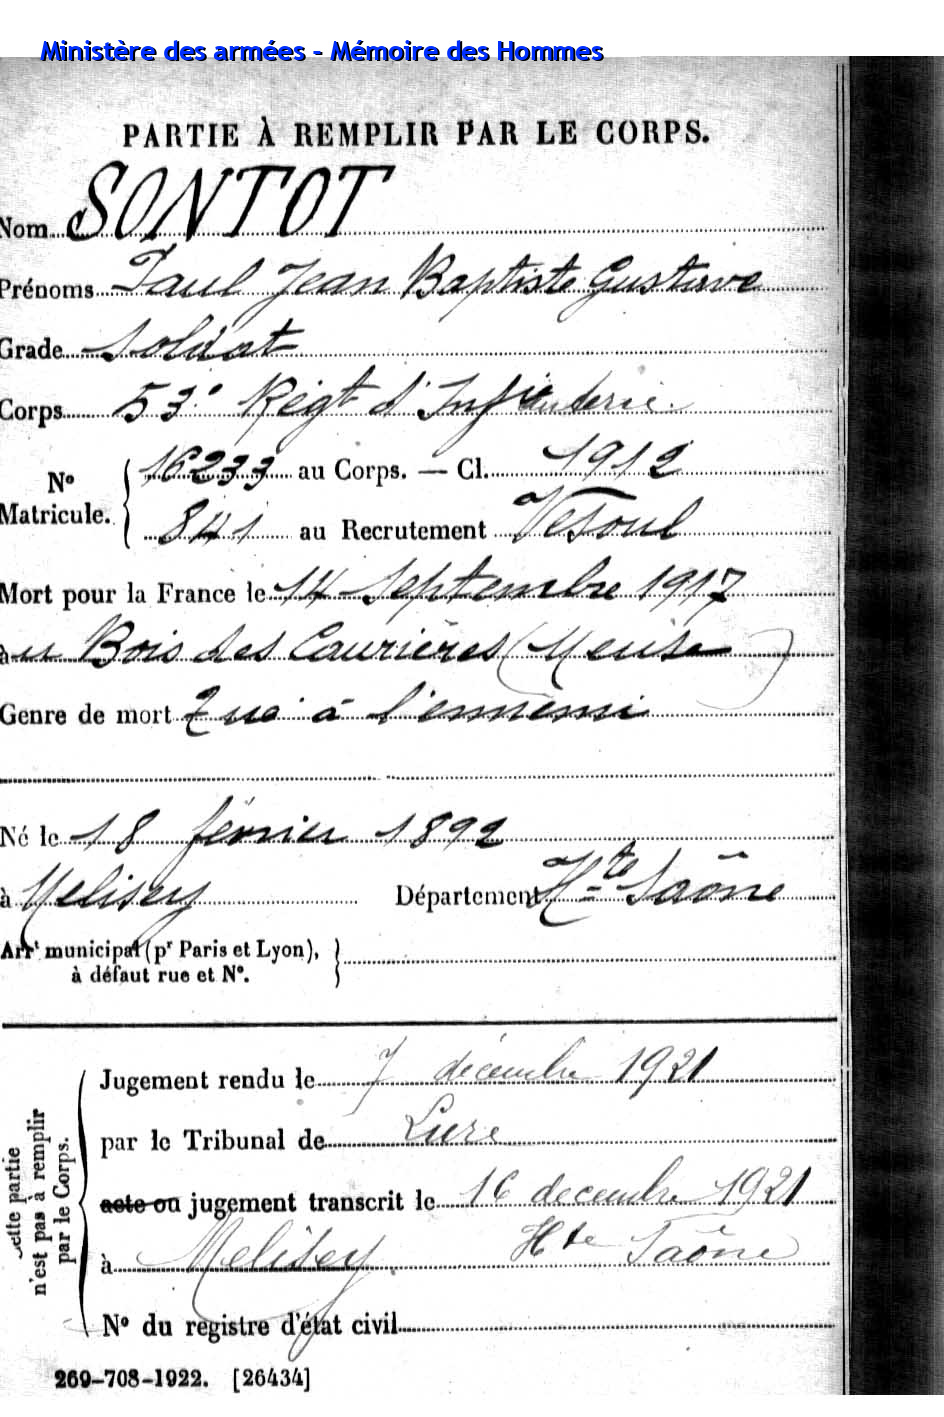 Ministère des armées - Mémoire des Hommes
PARTIE À REMPLIR PAR LE CORPS.
Nom SONTOT
Prénoms Paul Jean Baptiste Gustave
Grade Soldat
Corps 53e Régt d'Infanterie
No Matricule. { 16233 au Corps. — Cl. 1912
841 au Recrutement Vesoul
Mort pour la France le 14 Septembre 1917
au Bois des Caurières (Meuse)
Genre de mort Tué à l'ennemi
Né le 18 février 1892
à Melisey Département Hte Saône
Arrt municipal (pr Paris et Lyon),
à défaut rue et No.
Cette partie
n'est pas à remplir
par le Corps.
Jugement rendu le 7 décembre 1921
par le Tribunal de Lure
acte ou jugement transcrit le 16 decembre 1921
à Melisey Hte Saône
No du registre d'état civil
269-708-1922. [26434]